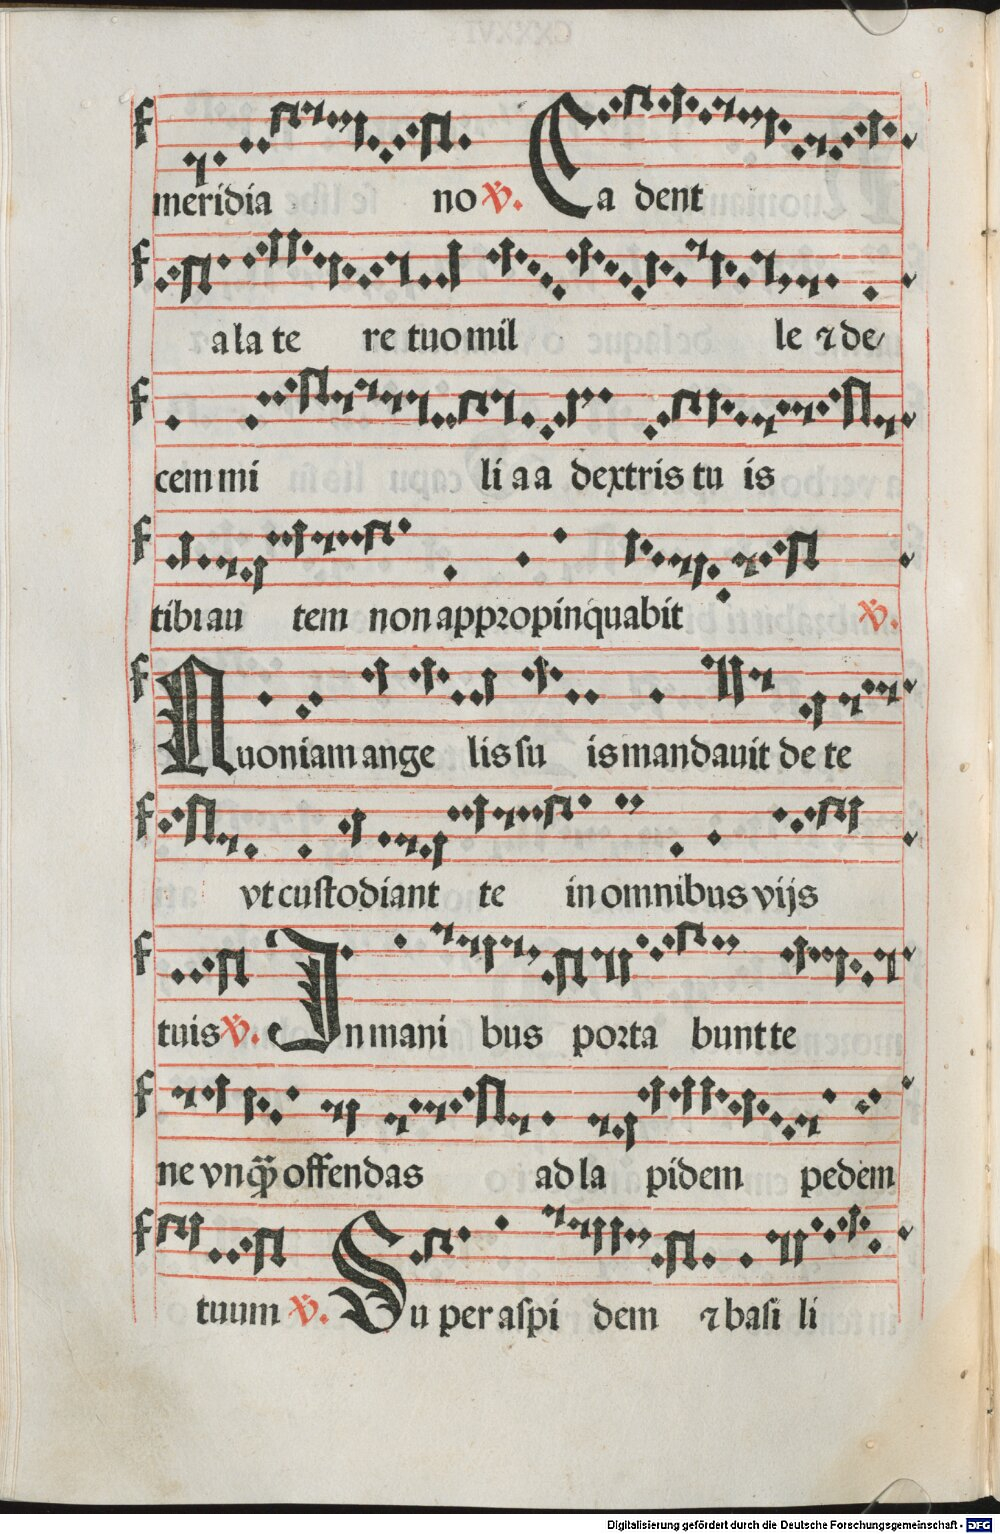 meridia no ℣. Ca dent
a la te re tuo mil le ⁊ de
cem mi li a a dextris tu is
tibi au tem non appropinquabit ℣.
Quoniam ange lis su is mandauit de te
vt custodiant te in omnibus vijs
tuis ℣. In mani bus porta bunt te
ne vnq̃ offendas ad la pidem pedem
tuum ℣. Su per aspi dem ⁊ basi li
Digitalisierung gefördert durch die Deutsche Forschungsgemeinschaft - DFG